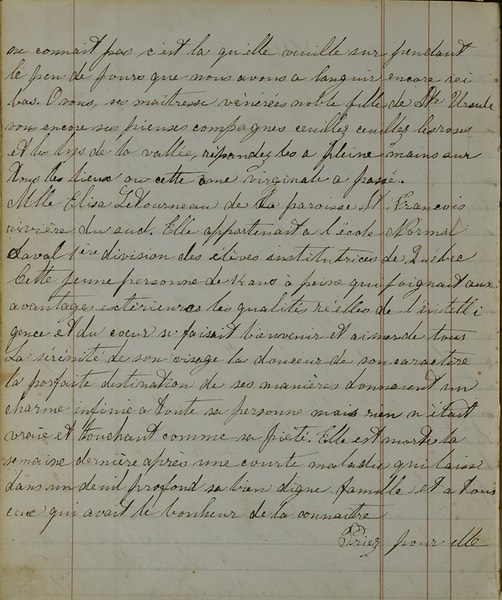 ne connait pas c'est la qu'elle veuille sur pendant
le peu de jours que nous avons a languir encore ici
bas. O vous, ses maîtresse vénérées noble fille de Ste Ursule
vous encore ses pieuses compagnes ceuillez ceuillez les roses
et les lys de la vallée, répandez les a pleine mains sur
tous les lieux ou cette ame virginale a passé.
Mlle Eliza Letourneau de la paroisse St. François
rivière du sud. Elle appartenant a l'école Normal
Laval 1ère division des élèves institutrices de Quebec
Cette jeune personne de 14 ans à peine qui joignant aux
avantages exterieures les qualités réelles de l'intelli
gence et du coeur se faisait bienvenir et aimer de tous
La sérénité de son visage la douceur de son caractère
la parfaite destination de ses manières donnaient un
charme infime a toute sa personne mais rien n'était
vraie et touchant comme sa piété. Elle est morte la
semaine dernière après une courte maladie qui laisse
dans un deuil profond sa bien digne famille et a tous
ceux qui avait le bonheur de la connaître
Priez pour elle